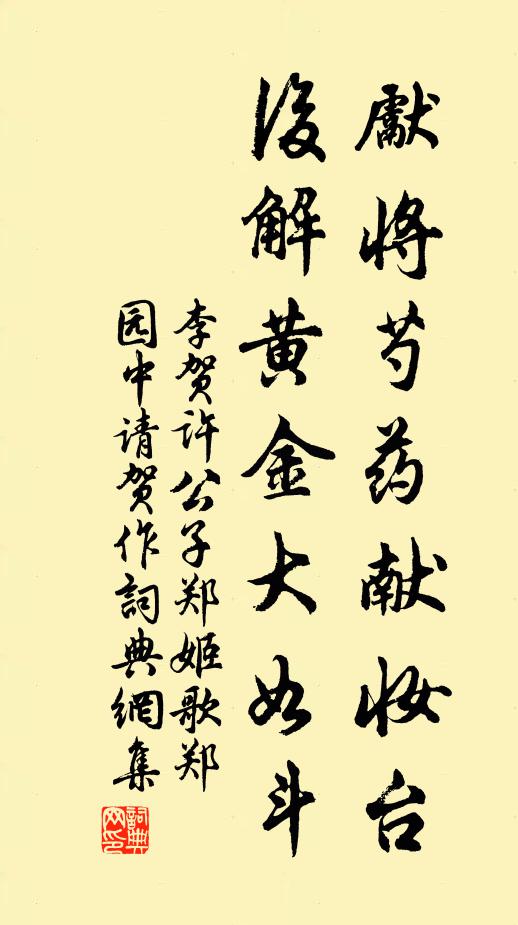 獻将芍药献妆台
後解黄金大如斗
李贺許公子郑姬歌郑
园中請贺作詞典網集
詞典网印